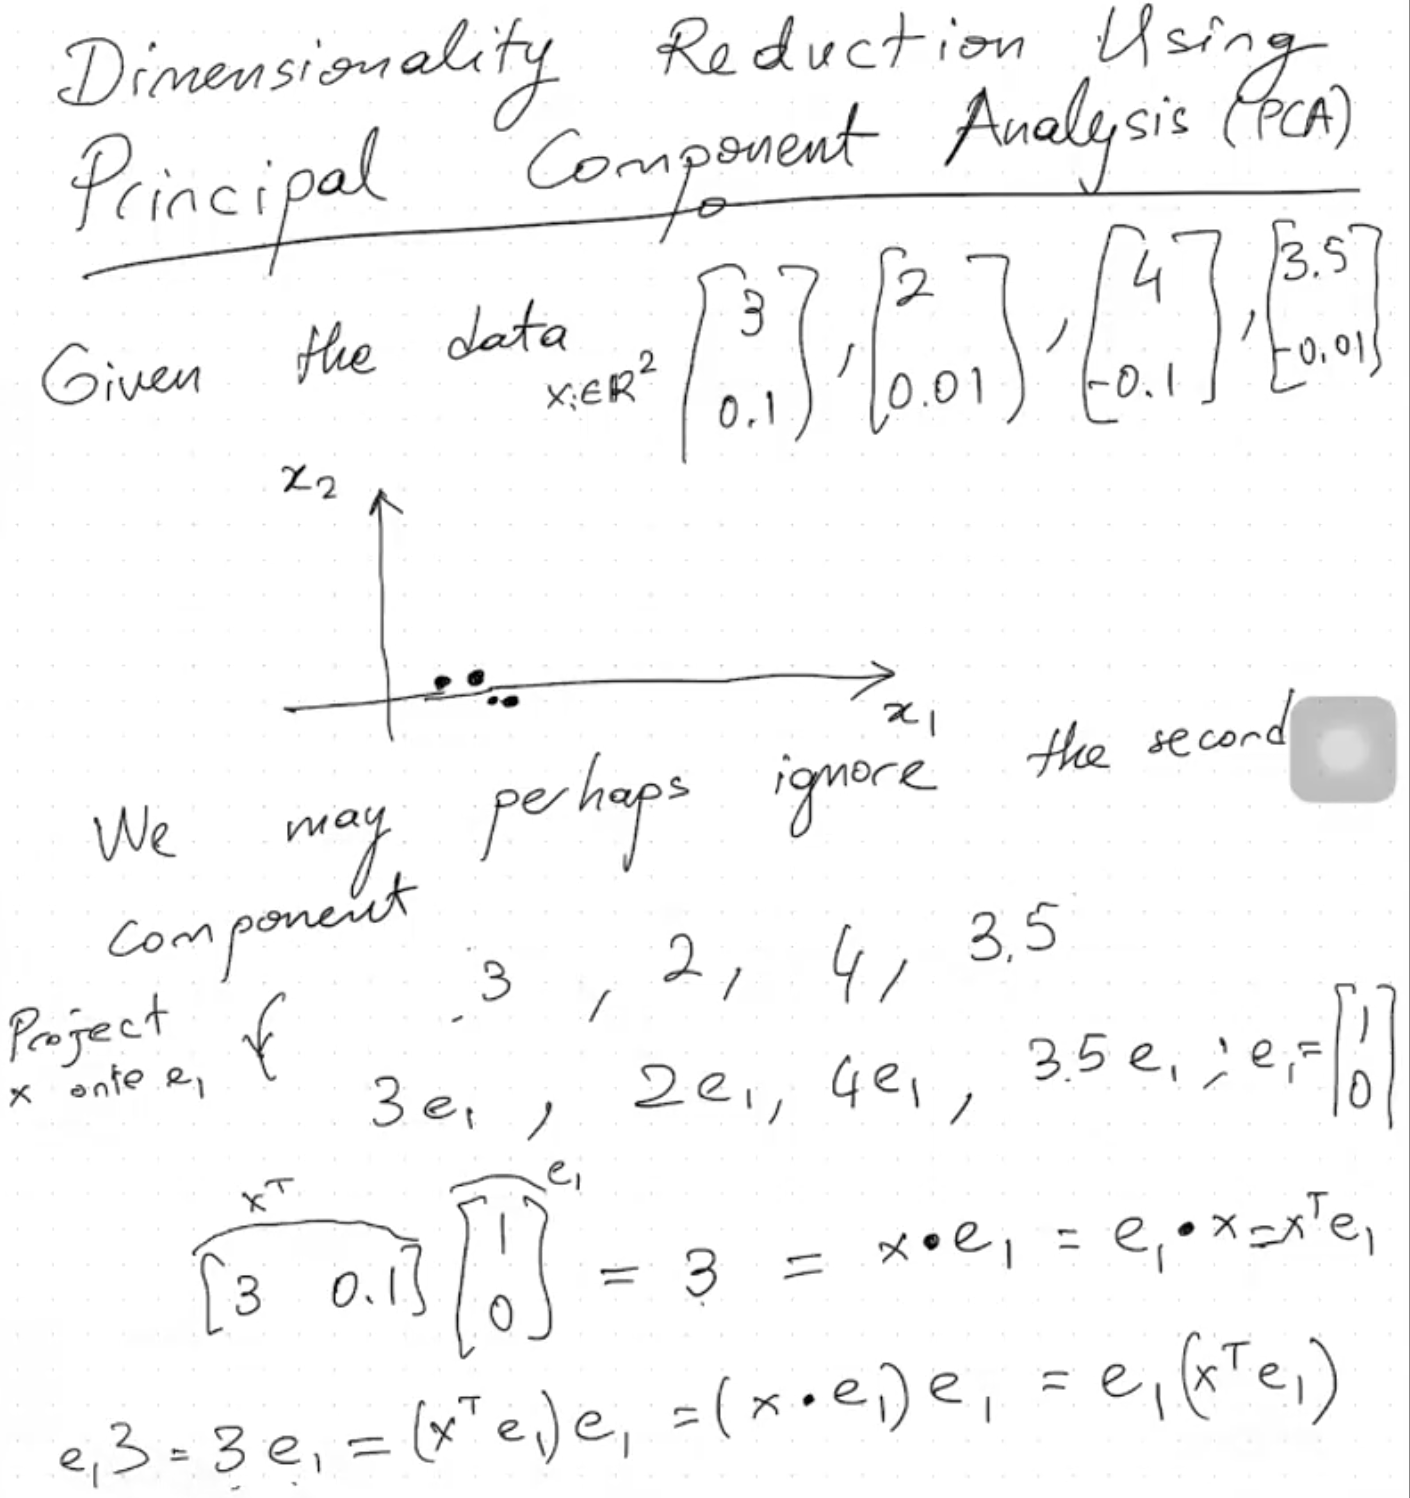 Dimensionality Reduction Using
Principal Component Analysis (PCA)
Given the data xᵢ∈ℝ² [3 0.1], [2 0.01], [4 -0.1], [3.5 -0.01]
x₂
x₁
We may perhaps ignore the second
component
3, 2, 4, 3.5
Project
x onto e₁
3e₁, 2e₁, 4e₁, 3.5e₁; e₁=[1 0]
xᵀ e₁
[3 0.1] [1 0] = 3 = x•e₁ = e₁•x=xᵀe₁
e₁3=3e₁=(xᵀe₁)e₁=(x•e₁)e₁ = e₁(xᵀe₁)